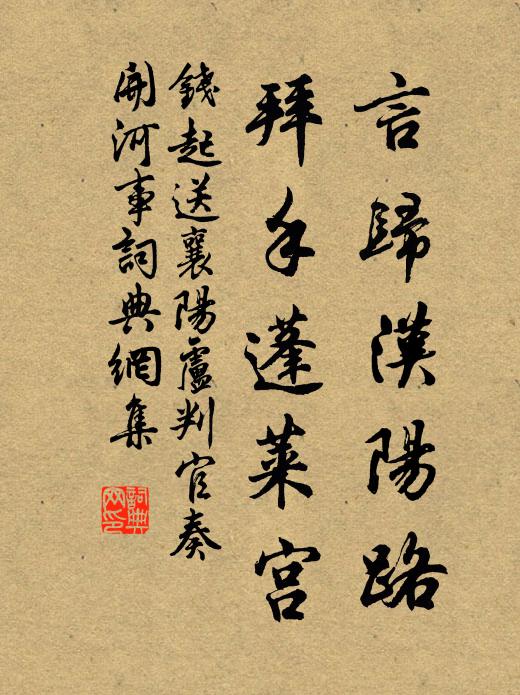 言歸漢陽路
拜手蓬萊宮
錢起送襄陽盧判官奏
開河事詞典網集
詞典
网印